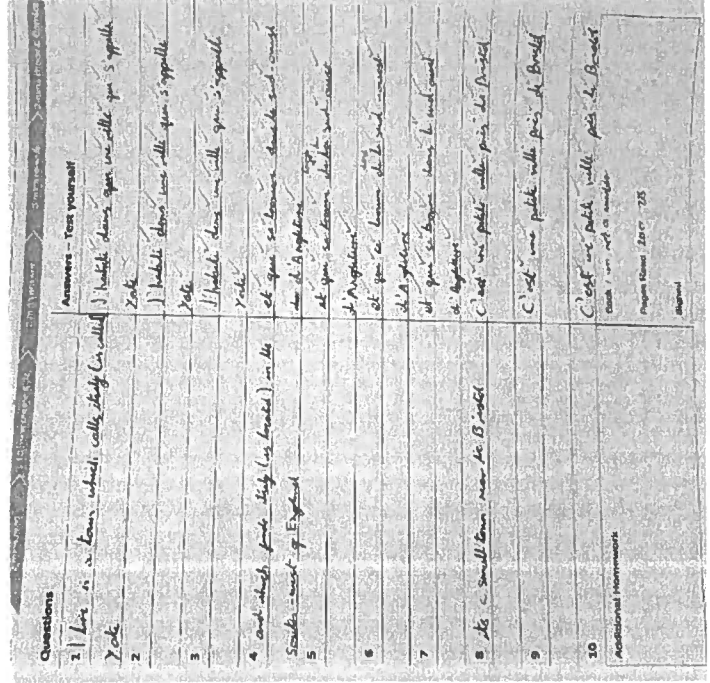 Questions
1 I live in a town which calls itself (is called)
Yate
2
3
4 and which finds itself (is located) in the
South-west of England
5
6
7
8 its a small town near to Bristol
9
10
Additional Homework
Answers - Test yourself
J'habite dans une ville qui s'appelle
Yate
J'habite dans une ville qui s'appelle
Yate
J'habite dans une ville qui s'appelle
Yate
et que se trouve dans le sud-ouest
d'Angleterre
et que se trouve sud-ouest
d'Angleterre
et qui se trouve le sud-ouest
d'Angleterre
et qui se trouve dans le sud-ouest
d'Angleterre
C'est une petite ville près de Bristol
C'est une petite ville près de Bristol
C'est une petite ville près de Bristol
Book
Pages Read
Signed